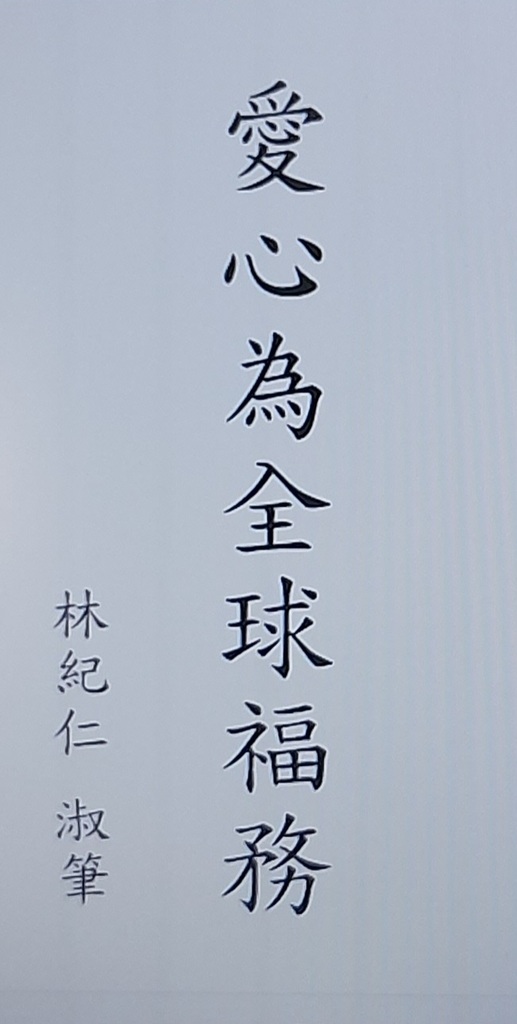 愛心為全球福務
林紀仁 淑筆